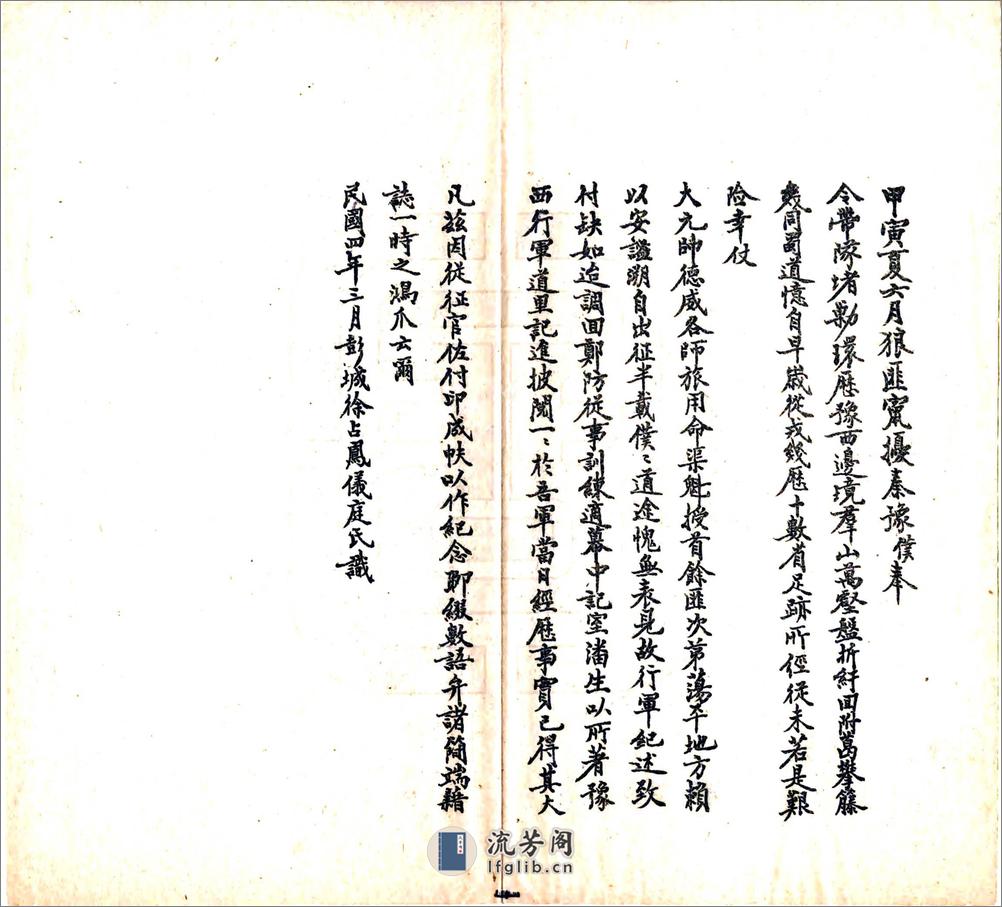 甲寅夏六月狼匪竄擾秦豫僕奉
令帶隊堵勦環歷豫西邊境羣山萬壑盤折紆回附葛攀籐
幾同蜀道憶自早歲從戎幾歷十數省足跡所經從未若是艱
險幸仗
大元帥德威各師旅用命渠魁授首餘匪次第蕩平地方賴
以安謐溯自出征半載僕〻道途愧無表見故行軍紀述致
付缺如迨調回鄭防從事訓練適幕中記室潘生以所著豫
西行軍道里記進披閱一〻於吾軍當日經歷事實已得其大
凡茲因從征官佐付印成帙以作紀念聊綴數語弁諸簡端藉
誌一時之鴻爪云爾
民國四年三月彭城徐占鳳儀庭氏識
流芳阁
lfglib.cn